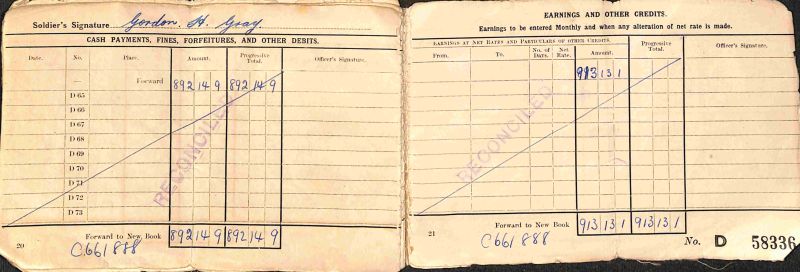 Soldier's Signature Gordon. H. Gray
CASH PAYMENTS, FINES, FORFEITURES, AND OTHER DEBITS.
Date. No. Place. Amount. Progressive Total. Officer's Signature.
— Forward 892 14 9 892 14 9
D 65
D 66
D 67
D 68
D 69
D 70
D 71
D 72
D 73
RECONCILED
Forward to New Book 892 14 9 892 14 9
20
C661888
EARNINGS AND OTHER CREDITS.
Earnings to be entered Monthly and when any alteration of net rate is made.
EARNINGS AT NET RATES AND PARTICULARS OF OTHER CREDITS.
From. To. No. of Days. Net Rate. Amount. Progressive Total. Officer's Signature.
913 13 1
RECONCILED
Forward to New Book 913 13 1 913 13 1
21
C661888
No. D 58336